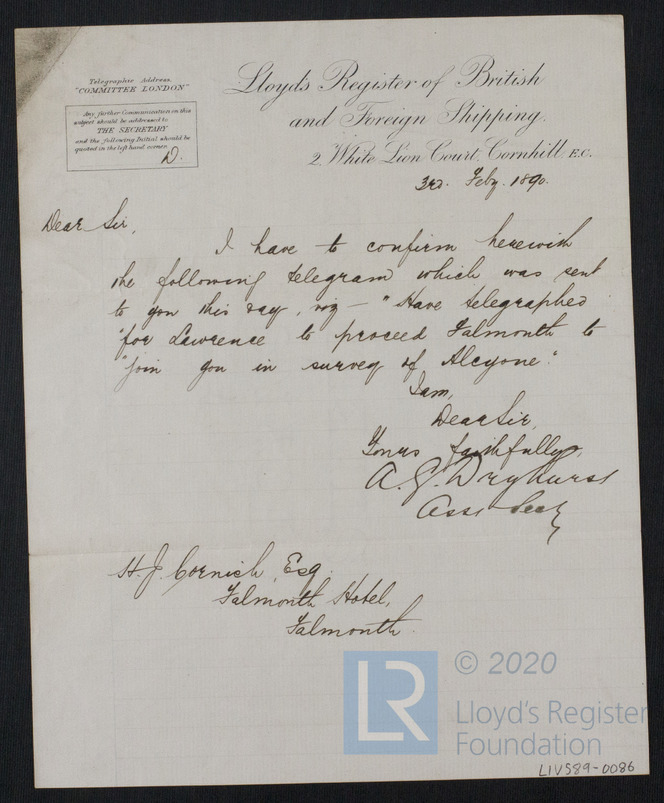 Telegraphic Address,
"COMMITTEE LONDON"
Any further Communication on this
subject should be addressed to
THE SECRETARY
and the following Initial should be
quoted in the left hand corner.
D.
Lloyds Register of British
and Foreign Shipping.
2, White Lion Court, Cornhill, E.C.
3rd. Feby. 1890.
Dear Sir,
I have to confirm herewith
the following telegram which was sent
to you this day, viz - "Have telegraphed
"for Lawrence to proceed Falmouth to
"join you in survey of Alcyone."
I am,
Dear Sir,
Yours faithfully,
A. G. Dryhurst
Asst Secy
H. J. Cornish, Esq.
Falmouth Hotel,
Falmouth.
LR
© 2020
Lloyd's Register
Foundation
LIVS89-0086